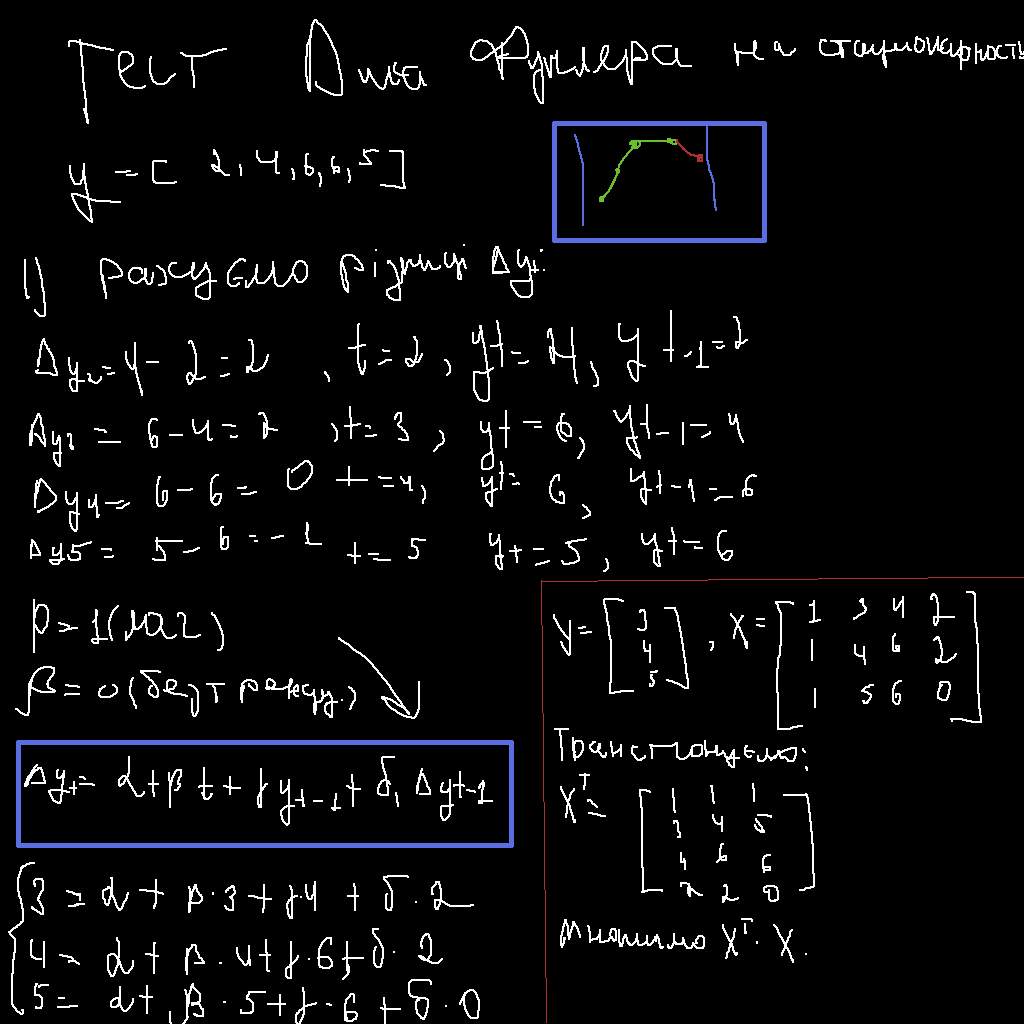 Тест Дика Фуллера на стационарность
y = [ 2, 4, 6, 6, 5 ]
1) рахуємо різниці Δyt:
Δy2 = 4 - 2 = 2 , t = 2 , yt = 4 , yt-1 = 2
Δy3 = 6 - 4 = 2 , t = 3 , yt = 6, yt-1 = 4
Δy4 = 6 - 6 = 0 t = 4, yt = 6, yt-1 = 6
Δy5 = 5 - 6 = -1 t = 5 yt = 5, yt = 6
p = 1 (лаг)
β = 0 (без тренду)
Δyt = α + β t + γ yt-1 + δ1 Δyt-1
3 = α + β · 3 + γ · 4 + δ · 2
4 = α + β · 4 + γ · 6 + δ · 2
5 = α + β · 5 + γ · 6 + δ · 0
y = [ 3 , X = [ 1 3 4 2
4 1 4 6 2
5 ] 1 5 6 0 ]
Транспонуємо:
X^T = [ 1 1 1
3 4 5
4 6 6
2 2 0 ]
Множимо X^T · X.